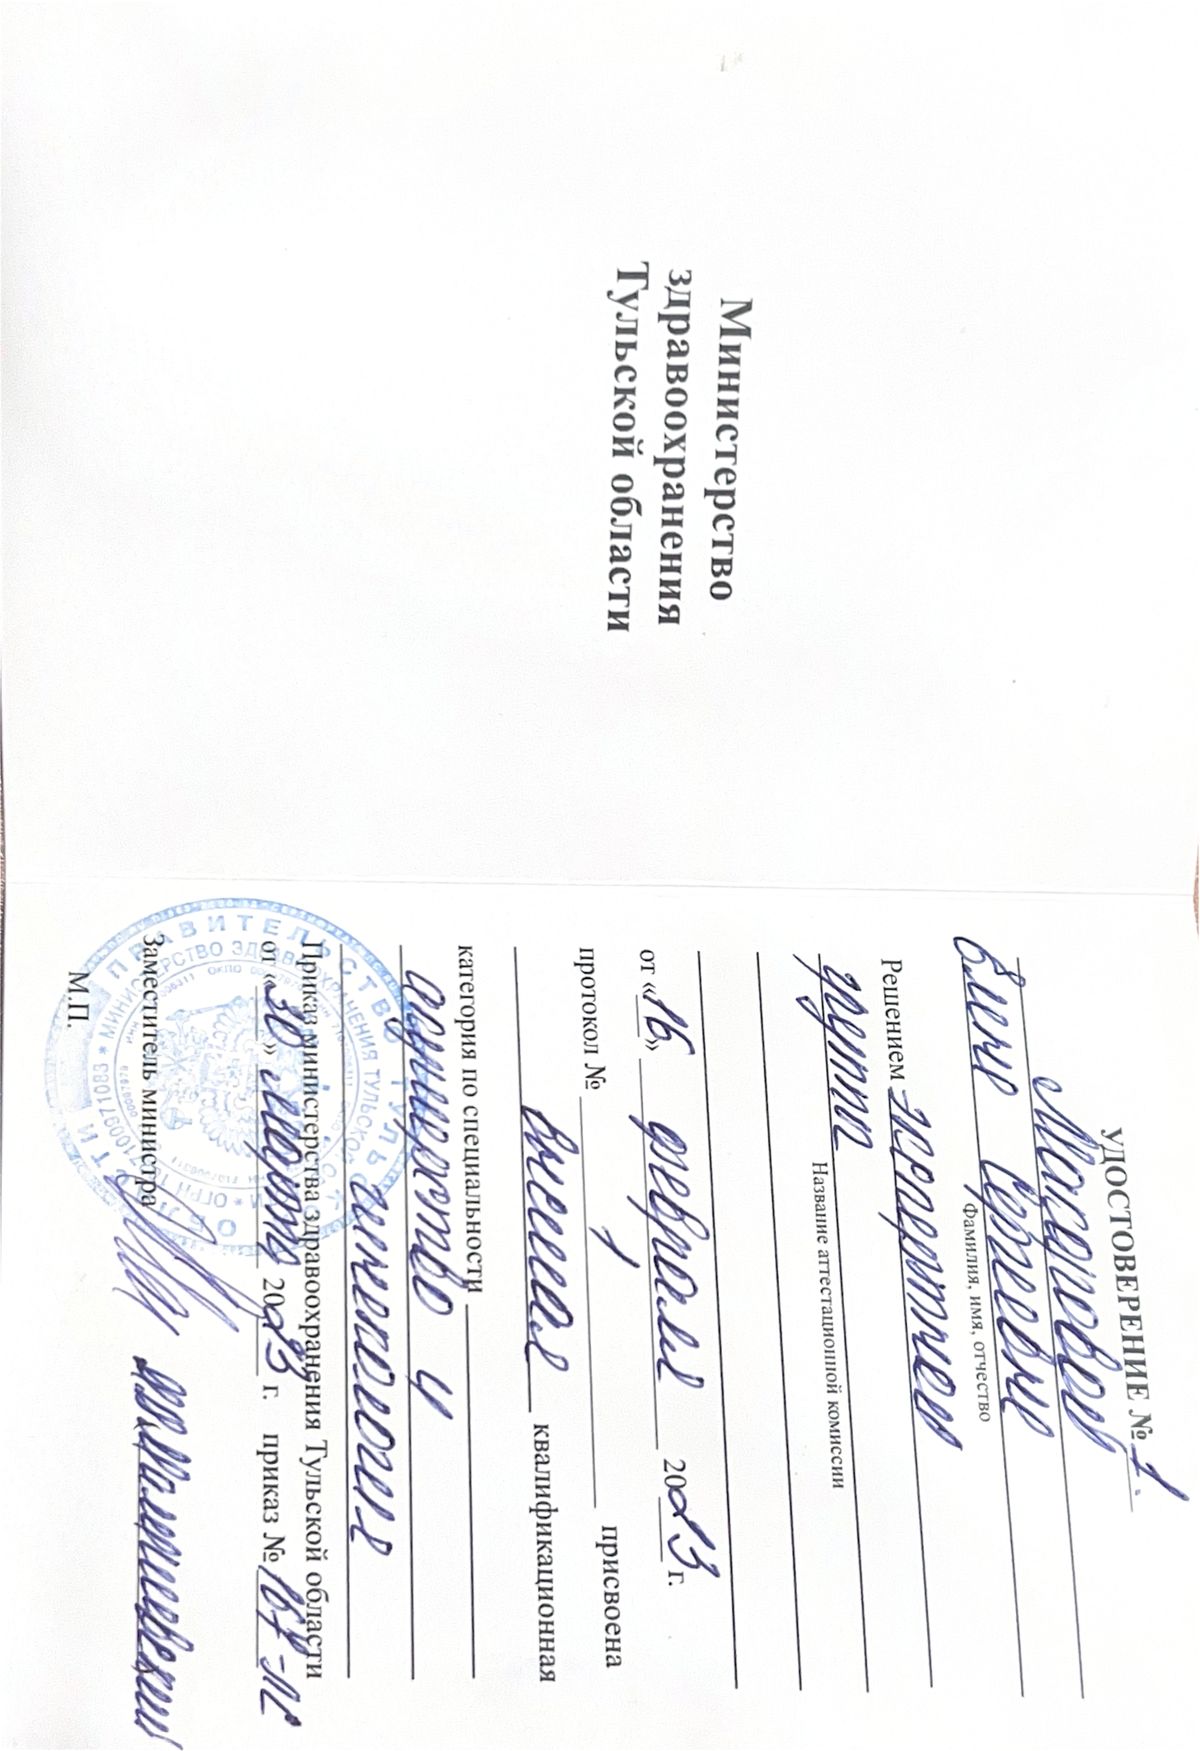 Министерство
здравоохранения
Тульской области
УДОСТОВЕРЕНИЕ № 1.
Макаровой
Елене Сергеевне
Фамилия, имя, отчество
Решением экспертной
групп
Название аттестационной комиссии
от «16» февраля 2023 г.
протокол № 1 присвоена
высшая квалификационная
категория по специальности
акушерство и
гинекология
Приказ министерства здравоохранения Тульской области
от «30» марта 2023 г. приказ № 167-
Заместитель министра
М.П.
ПРАВИТЕЛЬСТВО ТУЛЬСКОЙ ОБЛАСТИ
МИНИСТЕРСТВО ЗДРАВООХРАНЕНИЯ ТУЛЬСКОЙ ОБЛАСТИ